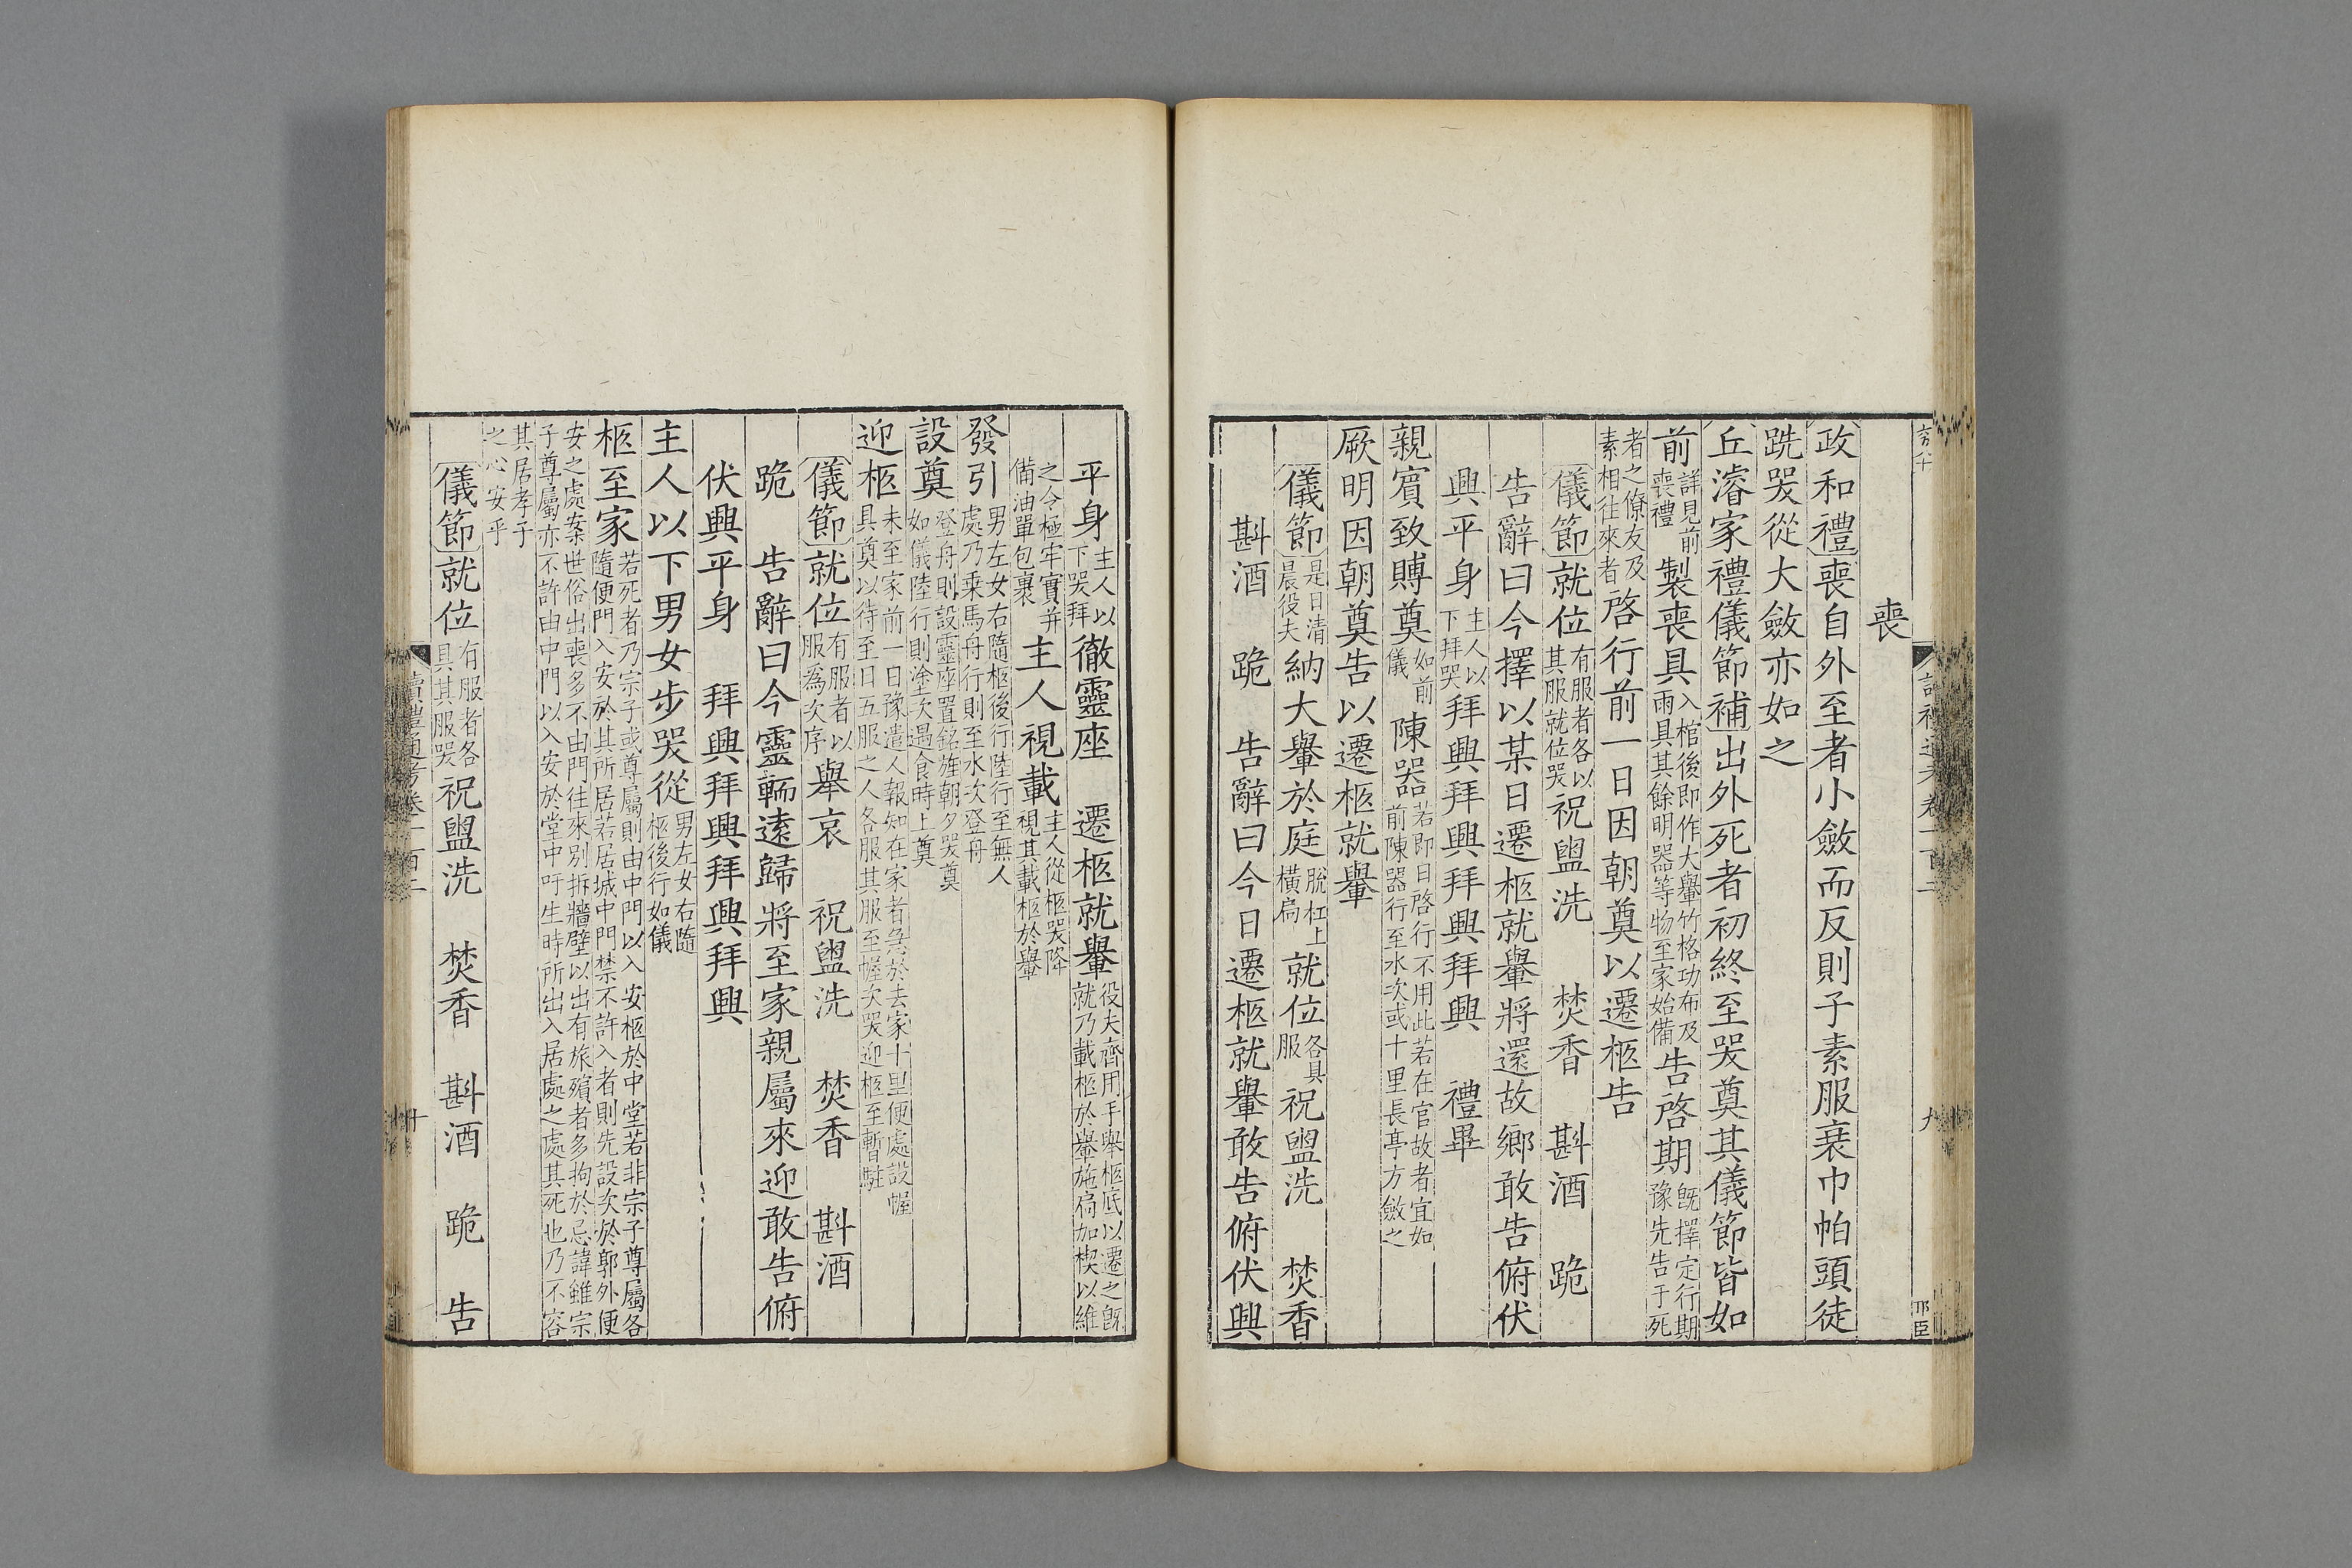 喪
政和禮喪自外至者小斂而反則子素服衰巾帕頭徒
跣哭從大斂亦如之
丘濬家禮儀節補出外死者初終至哭奠其儀節皆如
前詳見前喪禮 製喪具入棺後即作大轝竹格功布及雨具其餘明器等物至家始備告啓期旣擇定行期豫先告于死
者之僚友及素相往來者啓行前一日因朝奠以遷柩告
儀節就位有服者各以其服就位哭祝盥洗 焚香 斟酒 跪
告辭曰今擇以某日遷柩就轝將還故鄉敢告俯伏
興平身主人以下拜哭拜興拜興拜興拜興 禮畢
親賓致賻奠如前儀 陳器若即日啓行不用此若在官故者宜如前陳器行至水次或十里長亭方斂之
厥明因朝奠告以遷柩就轝
儀節是日清晨役夫納大轝於庭脫杠上橫扃 就位各具服祝盥洗 焚香
斟酒 跪 告辭曰今日遷柩就轝敢告俯伏興
平身主人以下哭拜徹靈座 遷柩就轝役夫齊用手舉柩底以遷之旣就乃載柩於轝施扃加楔以維
之令極牢實并備油單包裹主人視載主人從柩哭降視其載柩於轝
發引男左女右隨柩後行陸行至無人處乃乗馬舟行則至水次登舟
設奠登舟則設靈座置銘旌朝夕哭奠如儀陸行則塗次遇食時上奠
迎柩未至家前一日豫遣人報知在家者急於去家十里便處設幄具奠以待至日五服之人各服其服至幄次哭迎柩至暫駐
儀節就位有服者以服爲次序舉哀 祝盥洗 焚香 斟酒
跪 告辭曰今靈輀遠歸將至家親屬來迎敢告俯
伏興平身 拜興拜興拜興拜興
主人以下男女步哭從男左女右隨柩後行如儀
柩至家若死者乃宗子或尊屬則由中門以入安柩於中堂若非宗子尊屬各隨便門入安於其所居若居城中門禁不許入者則先設次於郭外便
安之處案世俗出喪多不由門往來別拆牆壁以出有旅殯者多拘於忌諱雖宗子尊屬亦不許由中門以入安於堂中吁生時所出入居處之處其死也乃不容
其居孝子之心安乎
儀節就位有服者各具其服哭祝盥洗 焚香 斟酒 跪 告